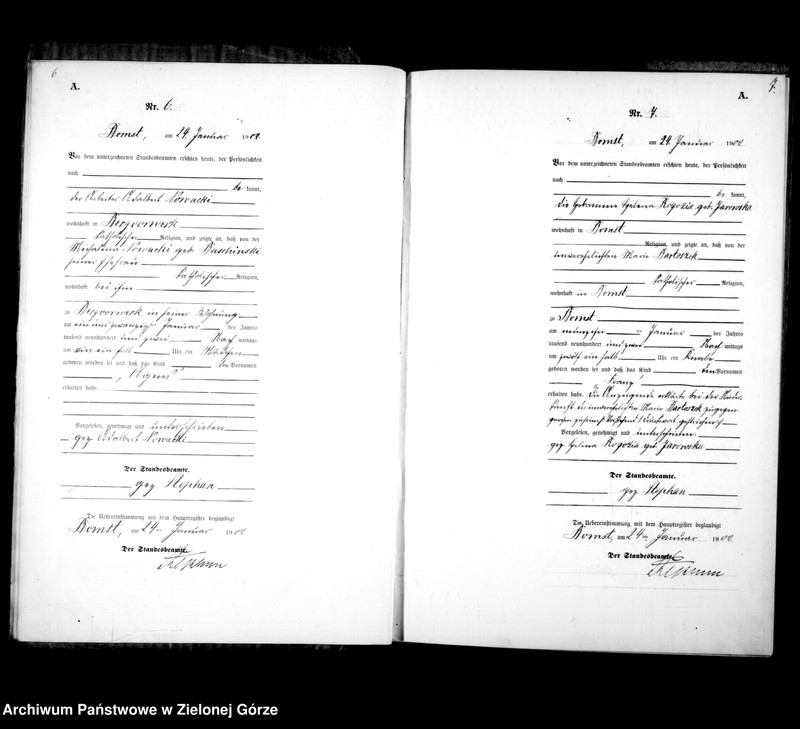 6
A.
Nr. 6.
Bomst, am 24. Januar 1902
Vor dem unterzeichneten Standesbeamten erschien heute, der Persönlichkeit
nach
be kannt,
der Arbeiter Adalbert Nowacki
wohnhaft in Bergvorwerk
katholischer Religion, und zeigte an, daß von der
Michalina Nowacki geb.
seiner Ehefrau
katholischer Religion,
wohnhaft bei ihm
zu Bergvorwerk in seiner Wohnung
am ein und zwanzigsten Januar des Jahres
tausend neunhundert und zwei Nach mittags
um vier ein halb Uhr ein Mädchen
geboren worden sei und daß das Kind den Vornamen
„Agnes“
erhalten habe.
Vorgelesen, genehmigt und unterschrieben
gez Adalbert Nowacki
Der Standesbeamte.
gez Stephan
Die Uebereinstimmung mit dem Hauptregister beglaubigt
Bomst, am 24ten Januar 1902
Der Standesbeamte.
Stephan
7.
A.
Nr. 7.
Bomst, am 24. Januar 1902
Vor dem unterzeichneten Standesbeamten erschien heute, der Persönlichkeit
nach
be kannt,
die Hebamme Helena Rogozia geb. Jarowska
wohnhaft in Bomst
Religion, und zeigte an, daß von der
unverehelichten Marie Bartoszek
katholischer Religion,
wohnhaft in Bomst
zu Bomst
am Januar des Jahres
tausend neunhundert und zwei Nach mittags
um zwölf ein halb Uhr ein Knabe
geboren worden sei und daß das Kind den Vornamen
„Franz“
erhalten habe. Die Anzeigende erklärte bei der Nieder-
kunft der unverehelichten Marie Bartoszek zugegen
gewesen zu sein.
Vorgelesen, genehmigt und unterschrieben
gez Helena Rogozia geb. Jarowska
Der Standesbeamte.
gez Stephan
Die Uebereinstimmung mit dem Hauptregister beglaubigt
Bomst, am 24ten Januar 1902
Der Standesbeamte.
Stephan
Archiwum Państwowe w Zielonej Górze